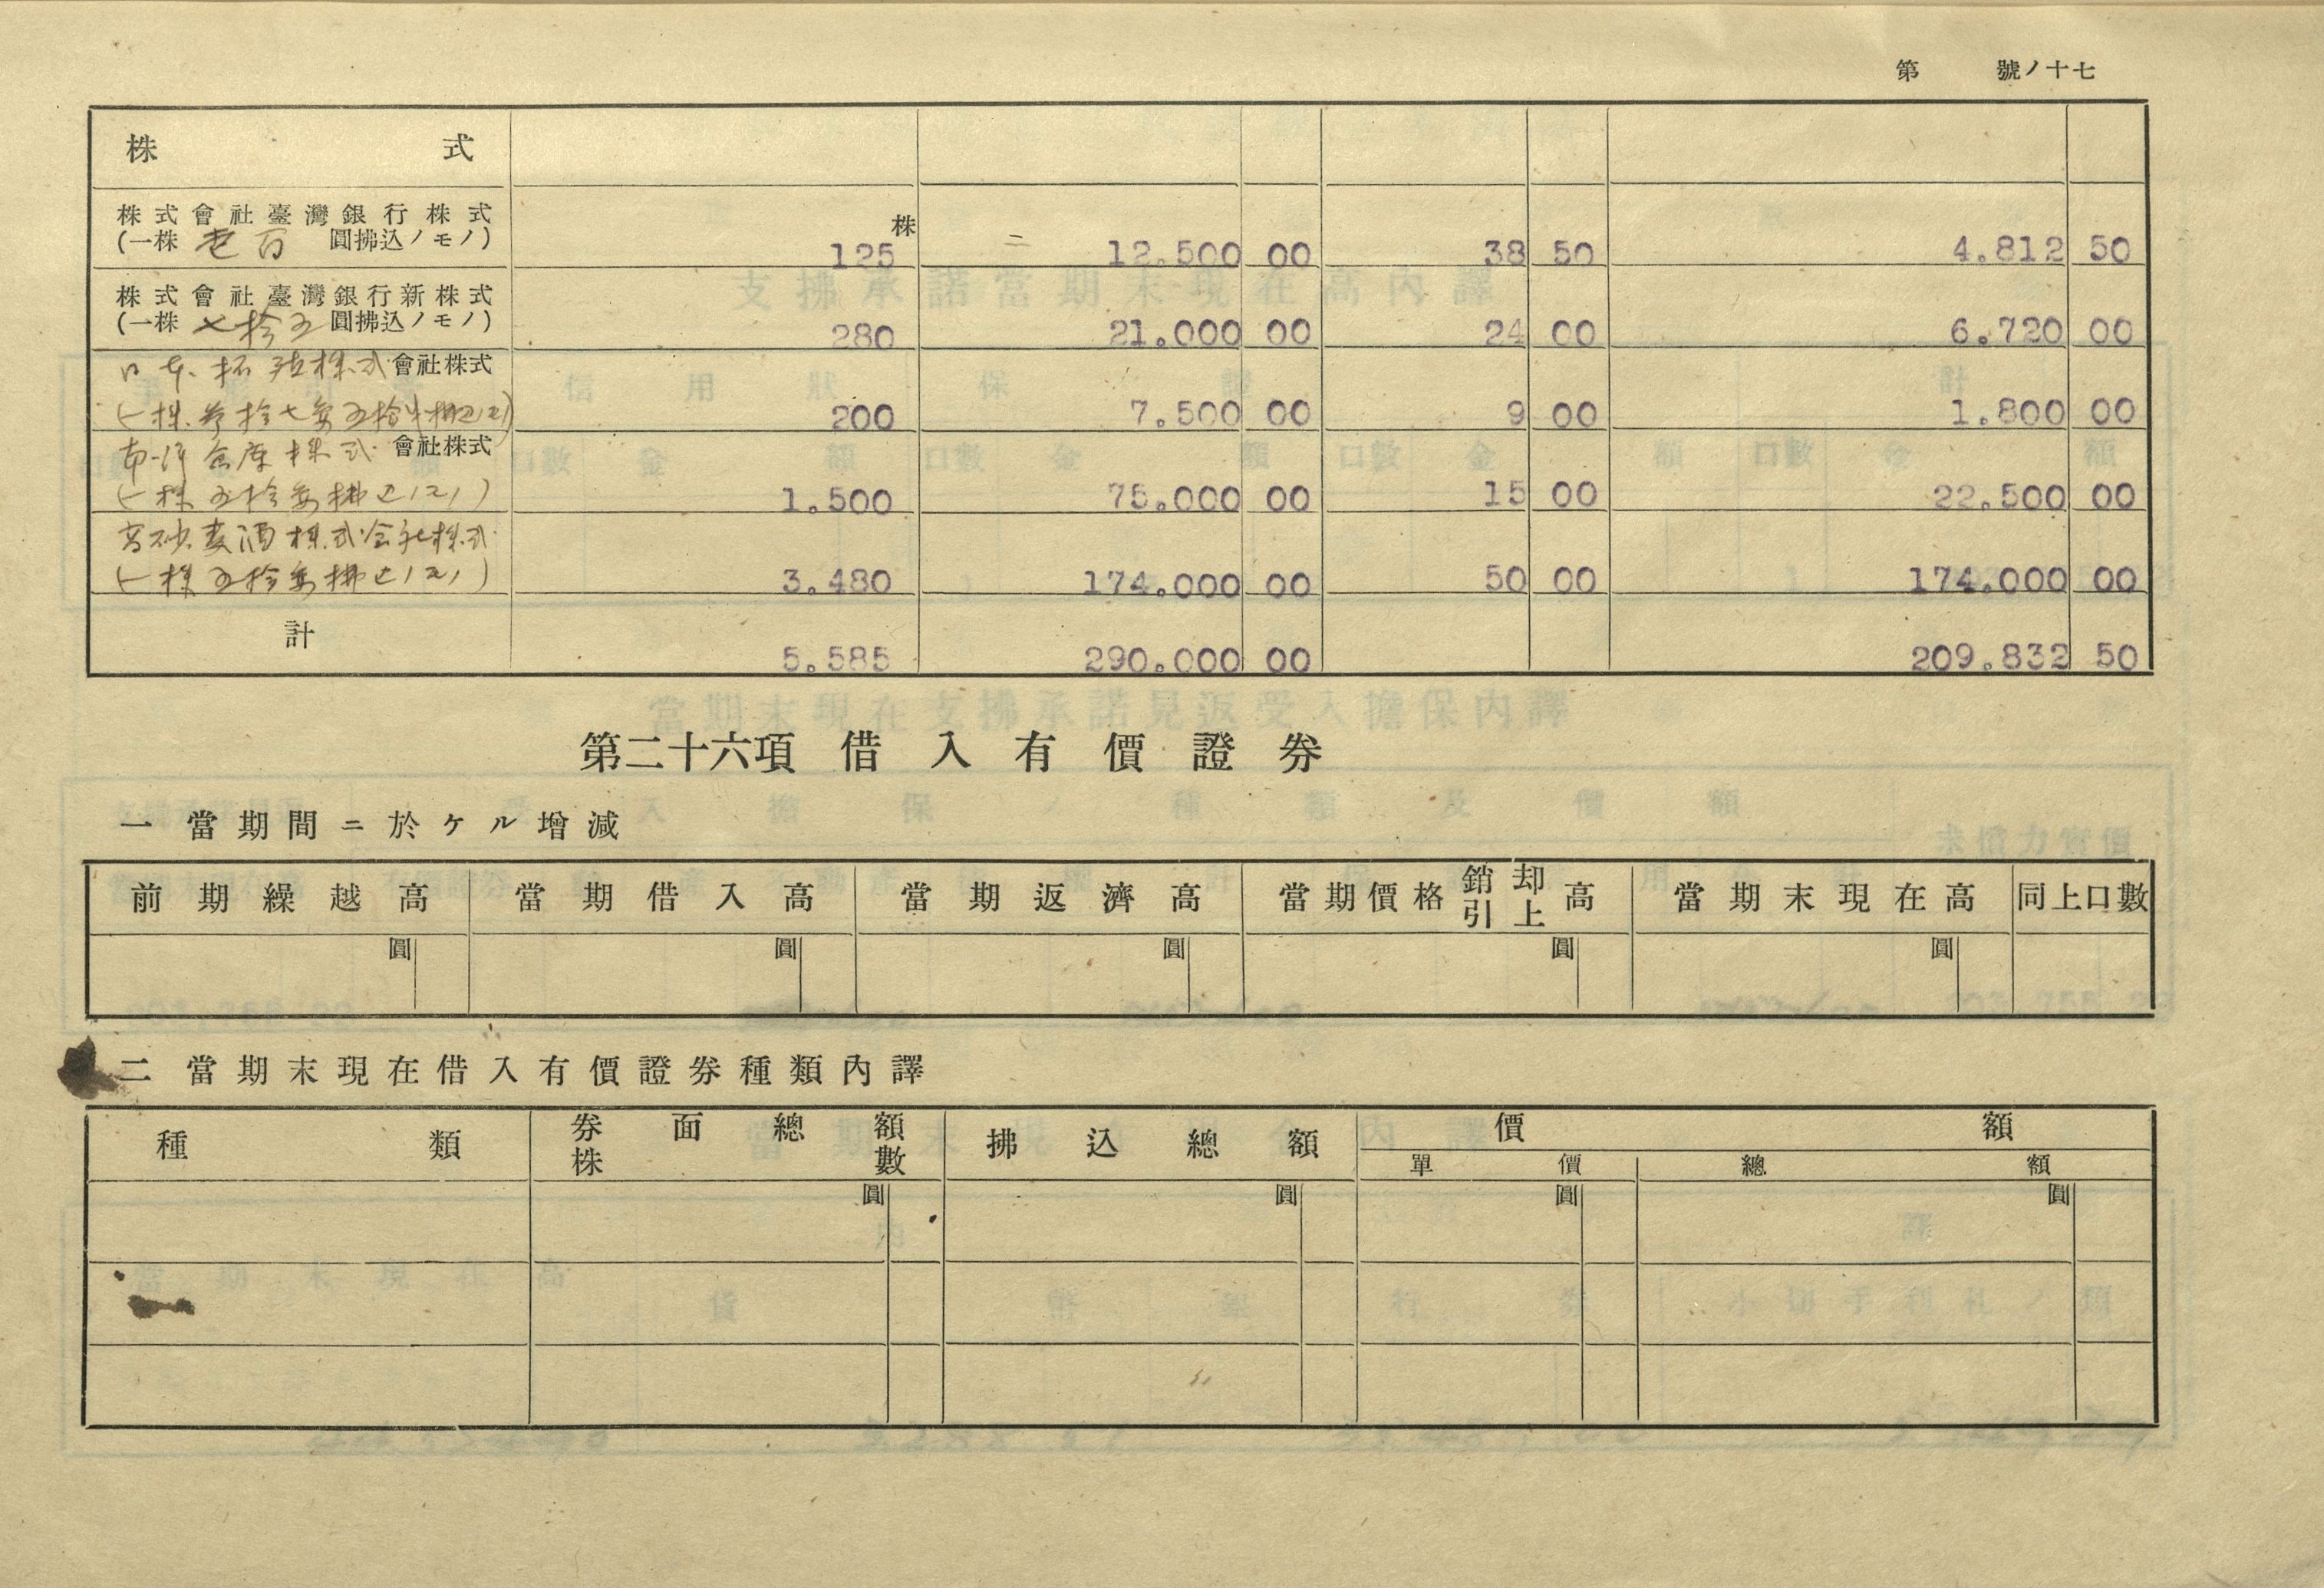 第 號ノ十七
株式
株式會社臺灣銀行株式
(一株 壱百 圓拂込ノモノ) 株 125 12.500 00 38 50 4.812 50
株式會社臺灣銀行新株式
(一株 七拾五 圓拂込ノモノ) 280 21.000 00 24 00 6.720 00
日本拓殖株式會社株式
(一株参拾七円五拾銭拂込ノモノ) 200 7.500 00 9 00 1.800 00
倉庫株式會社株式
(一株五拾円拂込ノモノ) 1.500 75.000 00 15 00 22.500 00
高砂麦酒株式会社株式
(一株五拾円拂込ノモノ) 3.480 174.000 00 50 00 174.000 00
計 5.585 290.000 00 209.832 50
第二十六項 借入有價證券
一 當期間ニ於ケル増減
前期繰越高 當期借入高 當期返濟高 當期價格銷却引上高 當期末現在高 同上口數
圓 圓 圓 圓 圓
二 當期末現在借入有價證券種類內譯
種類 券面總額 株數 拂込總額 價額
單價 總額
圓 圓 圓 圓